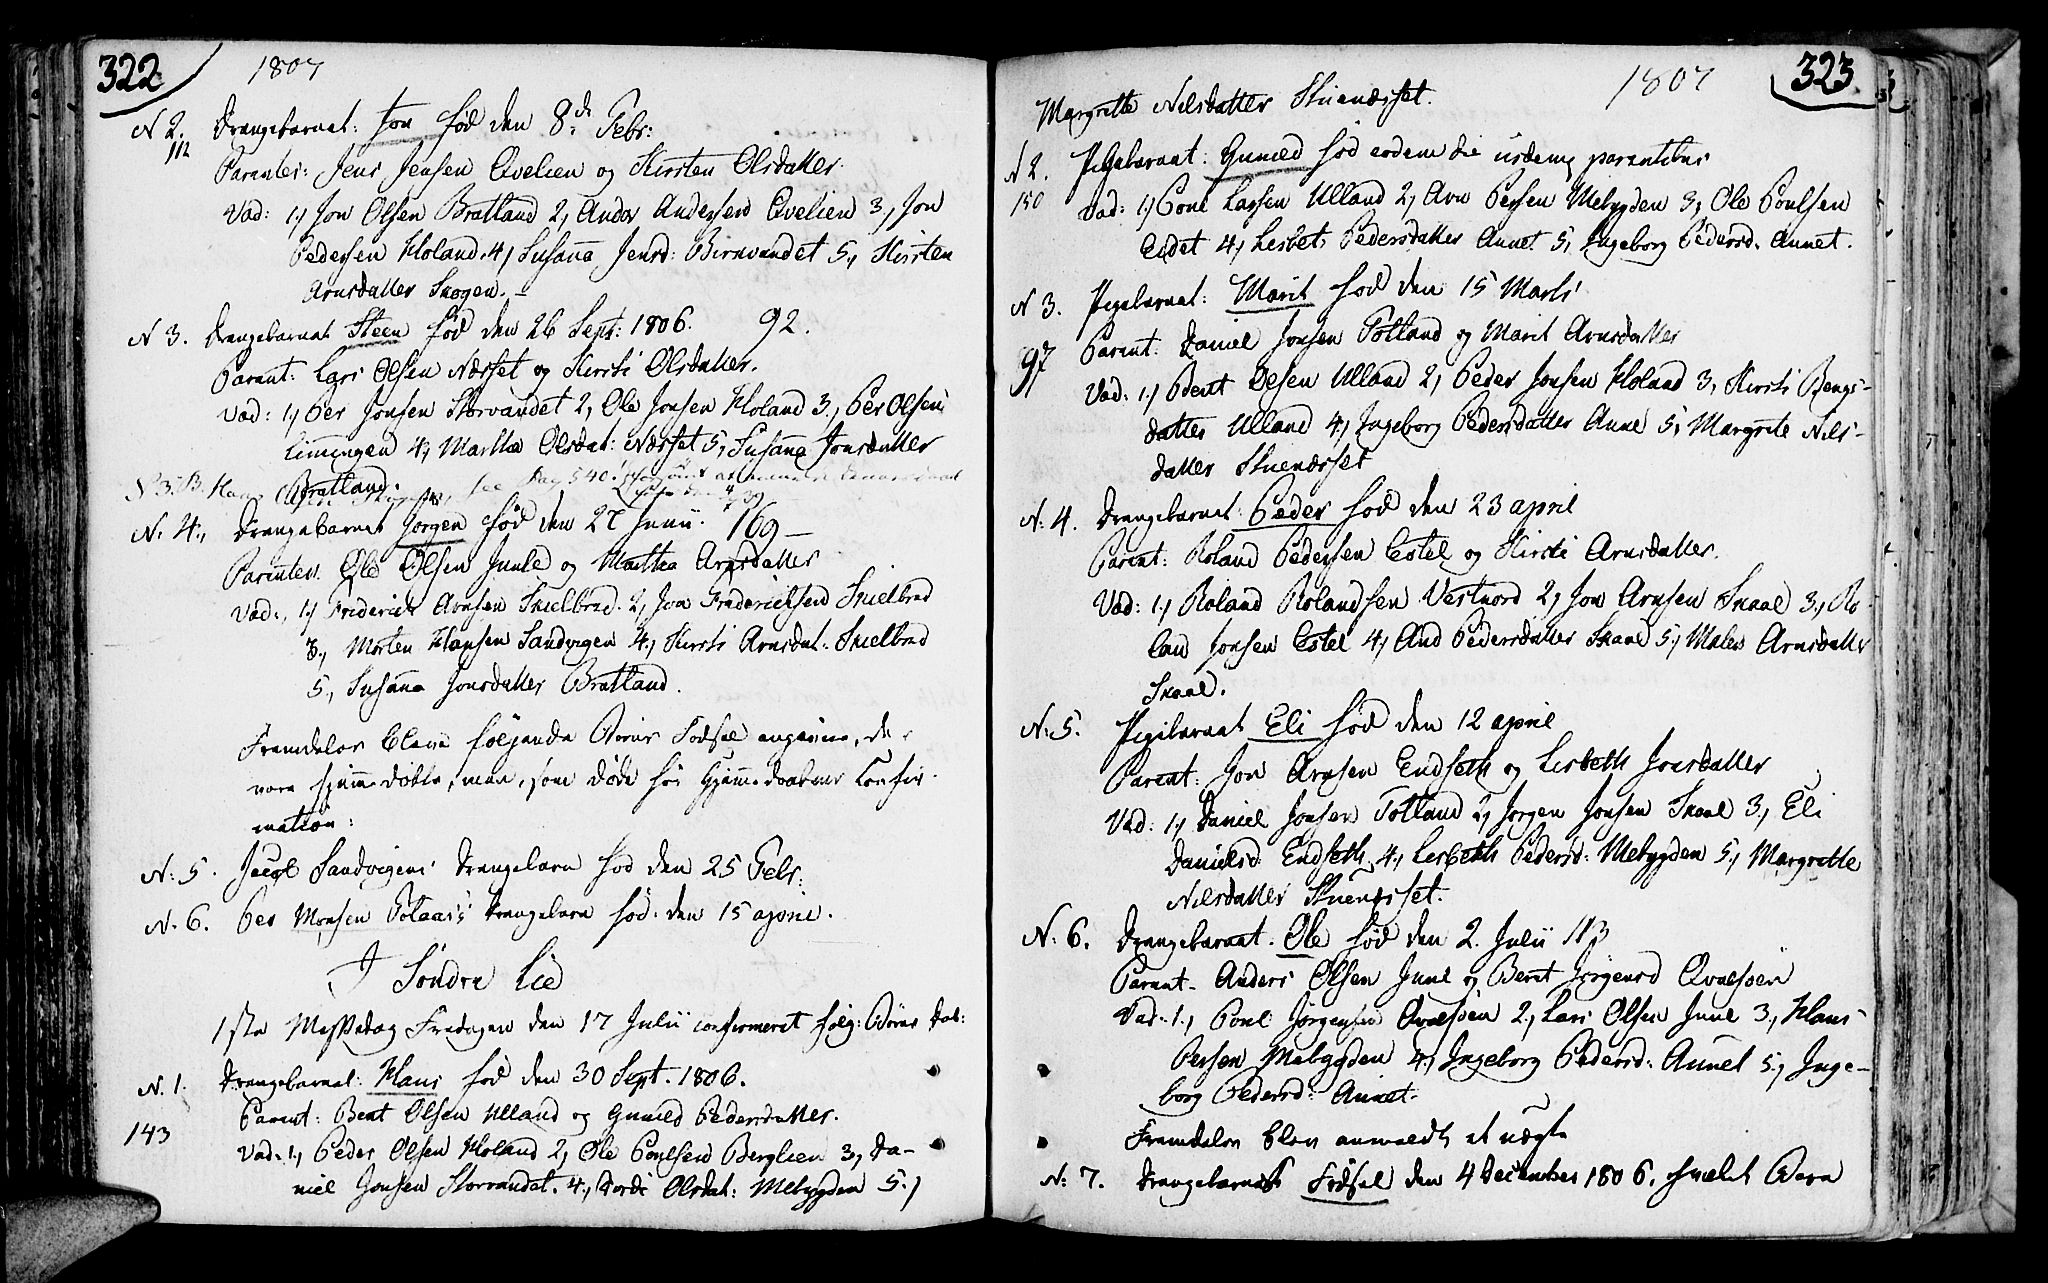 322 1807
N 2. Drangebarnet: Jon fød den 8de Febr:
112
Parentes: Jens Jensen Qvelien og Kirsten Olsdatter.
Vad: 1, Jon Olsen Bratland 2, Anders Andersen Qvelien 3, Jon
Pedersen Holand. 4, Susana Jensd: Birkvandet 5, Kirsten
Arnsdatter Skogen. –
N 3. Drengebarnet Steen fød den 26 Sept: 1806. 92.
Parent: Lars Olsen Næsset og Kirsti Olsdatter.
Vad: 1, Per Jonsen Storvandet 2, Ole Jonsen Holand 3, Per Olsen
Limingen 4, Martha Olsdat: Næsset 5, Susana Jonsdatter
Bratland.
N 3. B. Hans see Pag 540
N. 4., Drengebarnet Jørgen fød den 27 Junii. 169 –
Parentes. Ole Olsen Juule og Marthea Arnsdatter
Vad:, 1, Friderich Arnsen Skielbred. 2, Jon Friderichsen Skielbred
3., Morten Hansen Sandvigen 4, Kirsti Arnsdat: Skielbred
5., Susana Jonsdatter Bratland.
Fremdeles bleve følgende Børns Fødsel angivne, der
vare hjemmedøbte, men, som døde før Hjemmedaabens Confir-
mation:
N: 5. Jacob Sandvigens Drengebarn fød den 25 Febr:
N. 6. Per Monsen Drengebarn fød. den 15 april.
I Søndre Lie
1ste Messedag Fredagen den 17 Julii confirmeret følg: Børns Dab:
N. 1. Drengebarnet: Hans fød den 30 Sept. 1806.
Parent: Bent Olsen Ulland og Gunild Pedersdatter.
143
Vad. 1, Peder Olsen Holand 2, Ole Poulsen Berglien 3, Da-
niel Jonsen Storvandet. 4, Dordi Olsdat: Mebygden 5.,
1807 323
Margrette Nilsdatter Stuenæsset.
N 2. Pigebarnet: Gunild fød eodem die iisdem parentibus
150
Vad: 1, Poul Larsen Ulland 2, Arn Persen Mebygden 3, Ole Poulsen
Eidet 4, Lisbet Pedersdatter Aunet 5, Ingeborg Pedersd. Aunet.
N 3. Pigebarnet: Marit fød den 15 Marts
97 Parent: Daniel Jonsen Totland og Marit Arnsdatter
Vad: 1, Bent Olsen Ulland 2, Peder Jonsen Holand 3, Kirsti Bengs-
datter Ulland 4, Ingeborg Pedersdatter Aune 5, Margrete Nils-
datter Stuenæsset
N: 4. Drengebarnet: Peder fød den 23 april
Parent: Roland Pedersen Estel og Kirsti Arnsdatter.
Vad: 1, Roland Rolandsen Vestnord 2, Jon Arnsen Skaal 3, Ro-
lan Jonsen Estel 4, And Pedersdatter Skaal 5, Malen Arnsdatter
Skaal.
N: 5. Pigebarnet Eli fød den 12 april
Parent: Jon Arnsen Endseth og Lisbeth Jonsdatter
Vad: 1, Daniel Jonsen Totland 2, Jørgen Jonsen Skaal 3, Eli
Danielsd: Endseth 4, Lisbeth Pedersd: Mebygden 5, Margrette
Nilsdatter Stuenæsset.
N. 6. Drengebarnet. Ole fød den 2. Julii 113
Parent. Anders Olsen Juul og Beret Jørgensd Qvelsøen
Vad. 1., Poul Jørgensen Qvelsøen 2, Lars Olsen Juul 3, Hans
Persen Mebygden 4, Ingeborg Pedersd: Aunet 5., Inge-
borg Pedersd: Aunet.
Fremdeles blev anmeldt et uægte
N: 7. Drengebarnets Fødsel den 4 December 1806. hvilket Barn